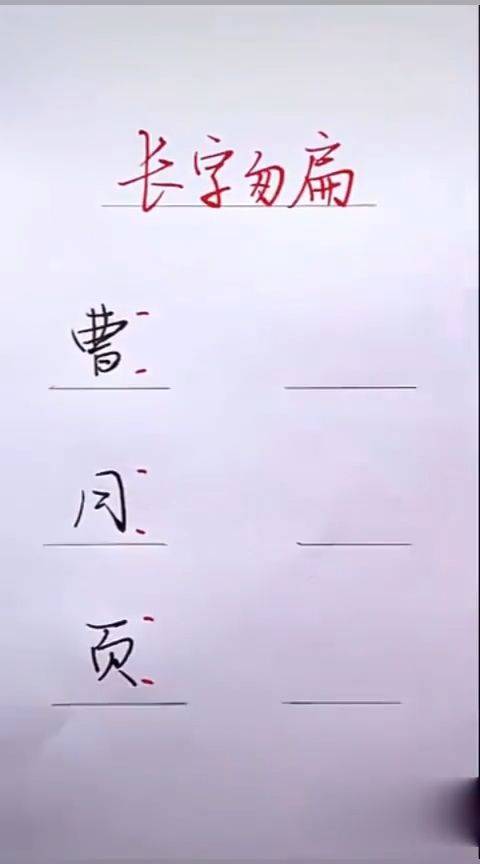 长字勿扁
曹
月
页